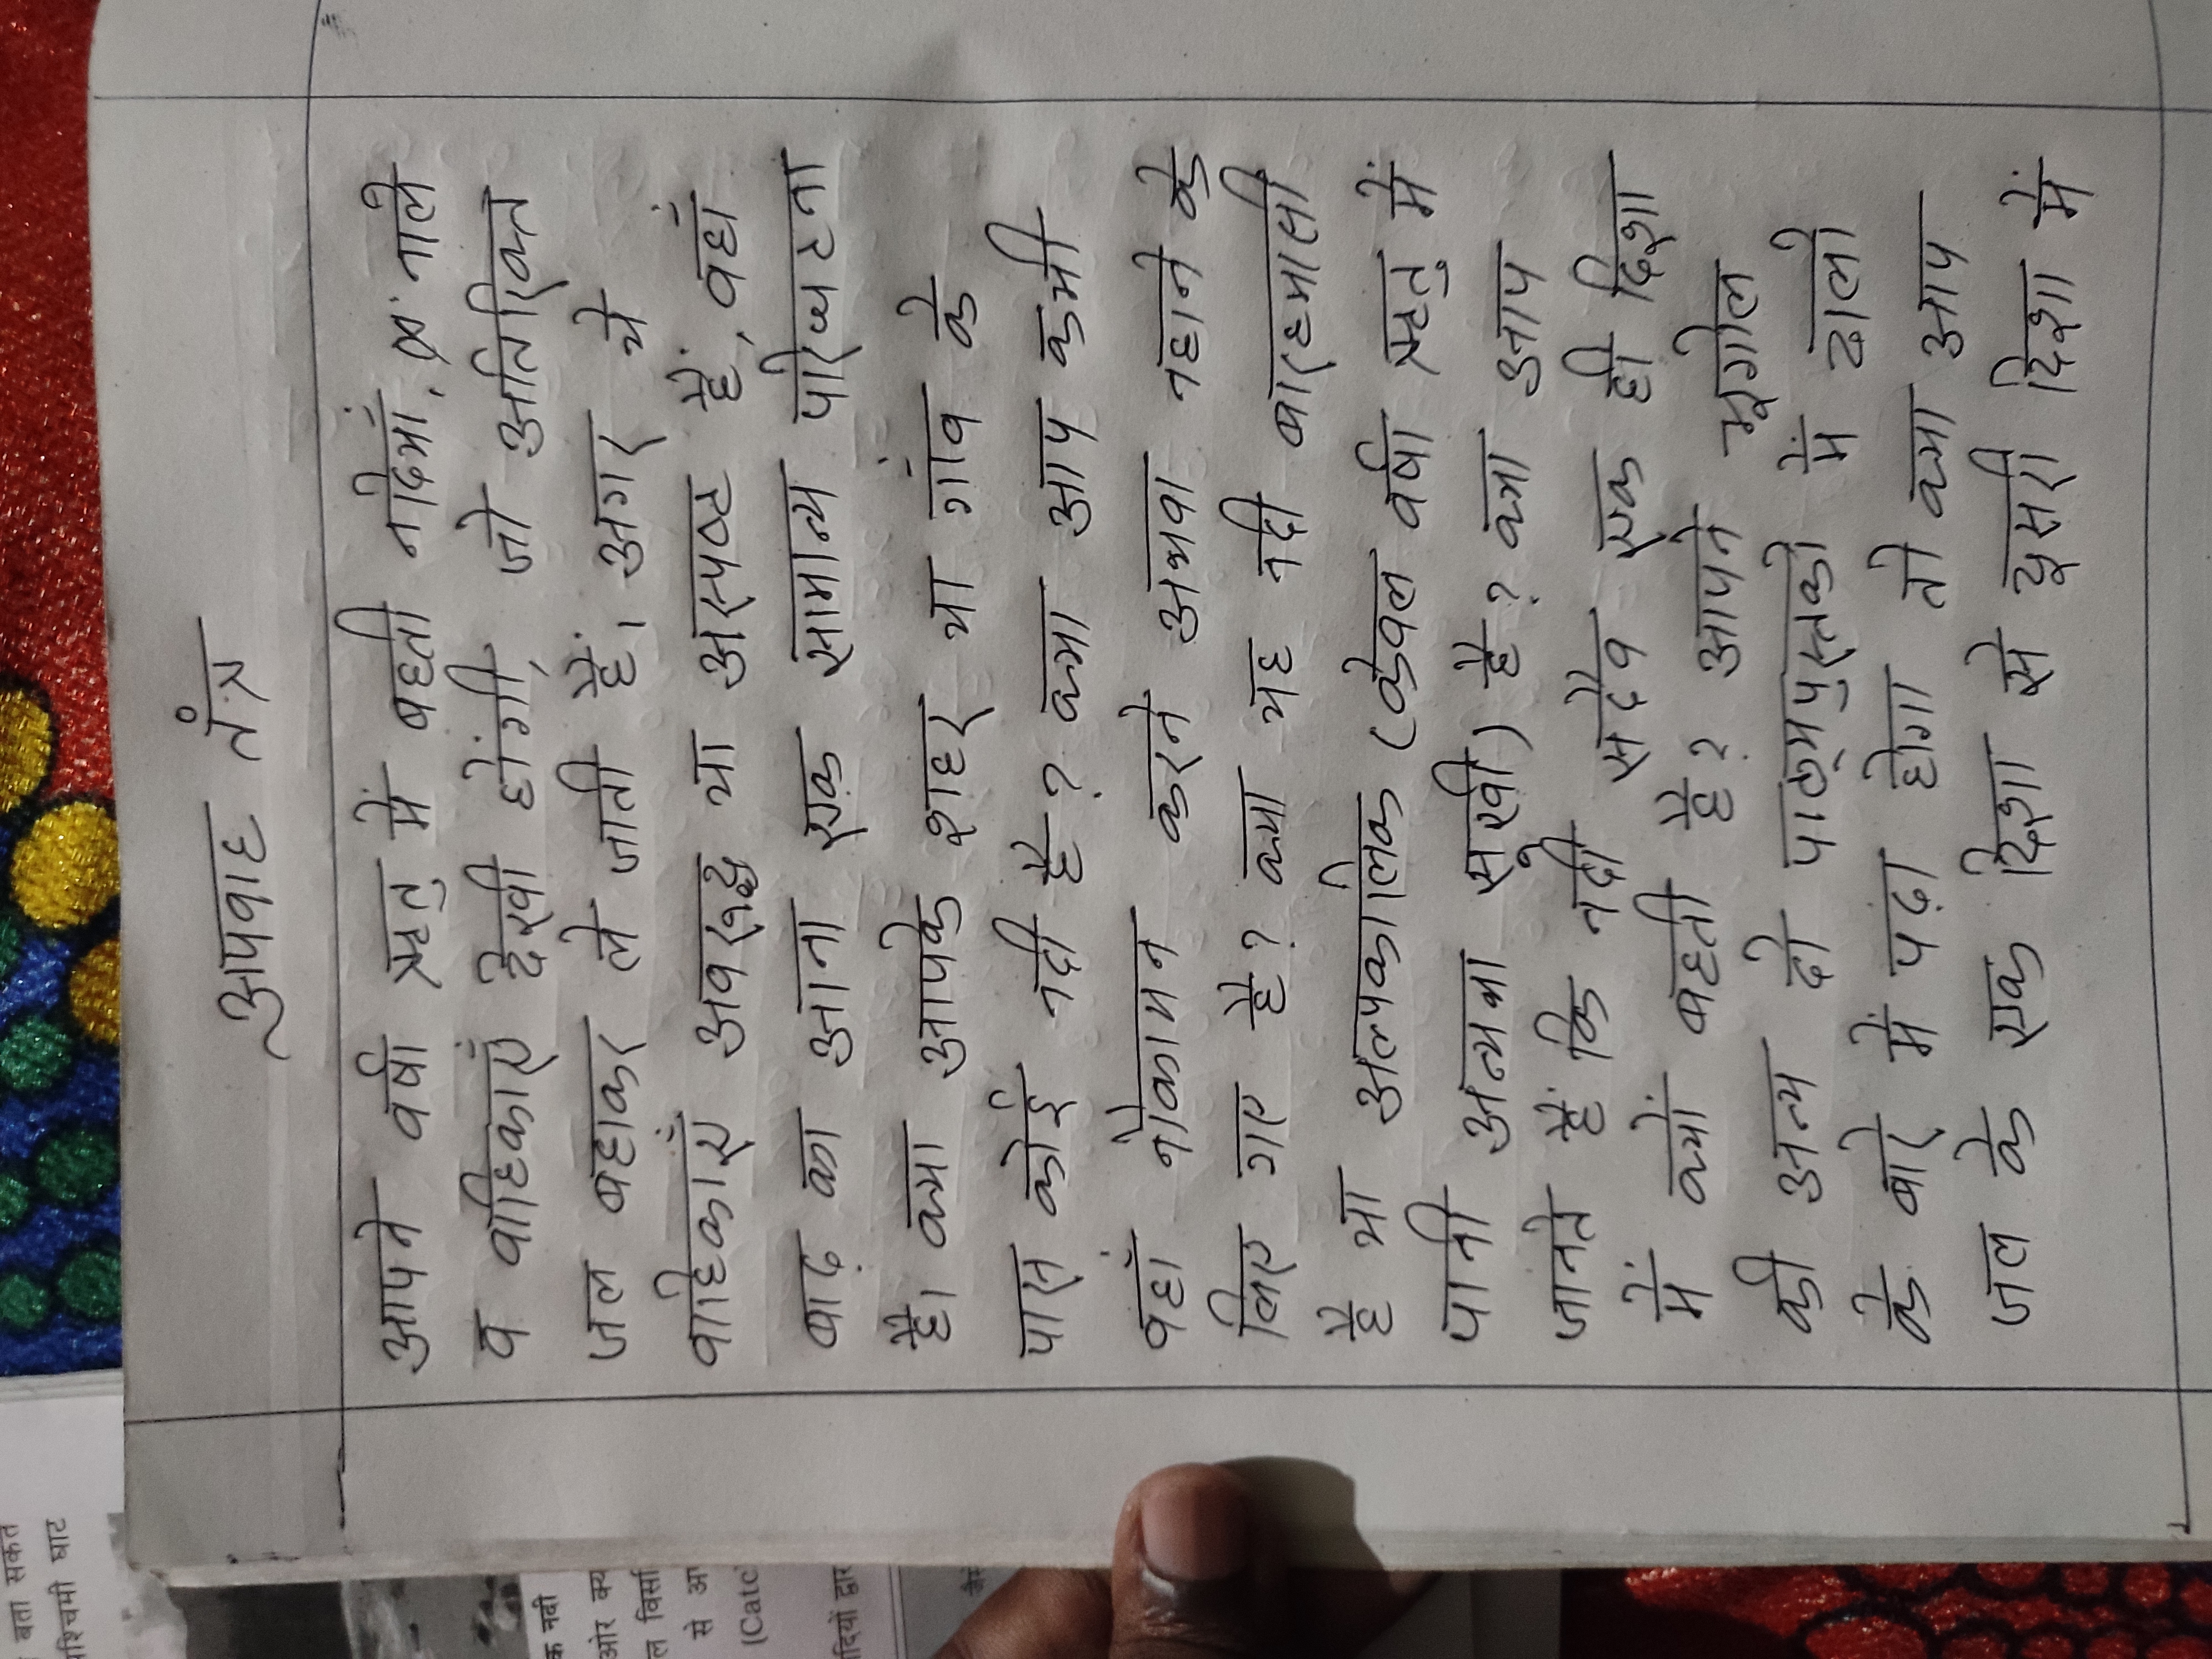 अपवाह तंत्र
आपने वर्षा ऋतु में बहती नदियाँ, नाले
व वाहिकाएँ देखी होंगी, जो अतिरिक्त
जल बहाकर ले जाती हैं। अगर ये
वाहिकाएँ अवरुद्ध या अस्पष्ट हैं, वहाँ
बाढ़ का आना एक सामान्य परिघटना
है। क्या आपके शहर या गाँव के
पास कोई नदी है? क्या आप कभी
वहाँ नौकायन करने अथवा नहाने के
लिए गए है? क्या यह नदी बारहमासी
है या अल्पकालिक (केवल वर्षा ऋतु में
पानी अन्यथा सूखी) है? क्या आप
जानते हैं कि नदी सदैव एक ही दिशा
में क्यों बहती है? आपने भूगोल
की अन्य दो पाठ्यपुस्तको में ढालो
के बारे में पढ़ा होगा तो क्या आप
जल के एक दिशा से दूसरी दिशा में
बता सकत
पश्चिमी घाट
क नदी
ओर क्य
ल विसर्
से अ
(Catc
दियों द्वार